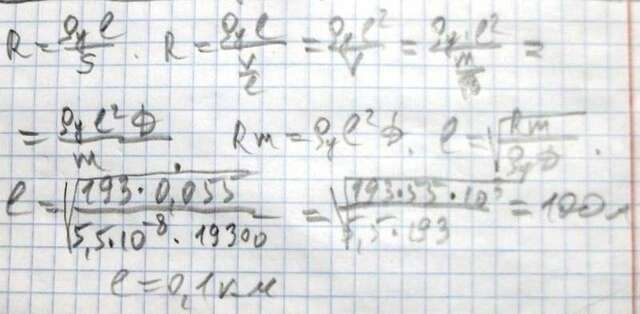 R = ρ_y l / S . R = ρ_y l / (V / l) = ρ_y l² / V = ρ_y · l² / (m / ф) =
= ρ_y l² ф / m R m = ρ_y l² ф . l = √(R m / ρ_y ф) .
l = √(193 · 0,055 / 5,5 · 10⁻⁸ · 19300) = √(193 · 55 · 10³ / 5,5 · 193) = 100 м
l = 0,1 км